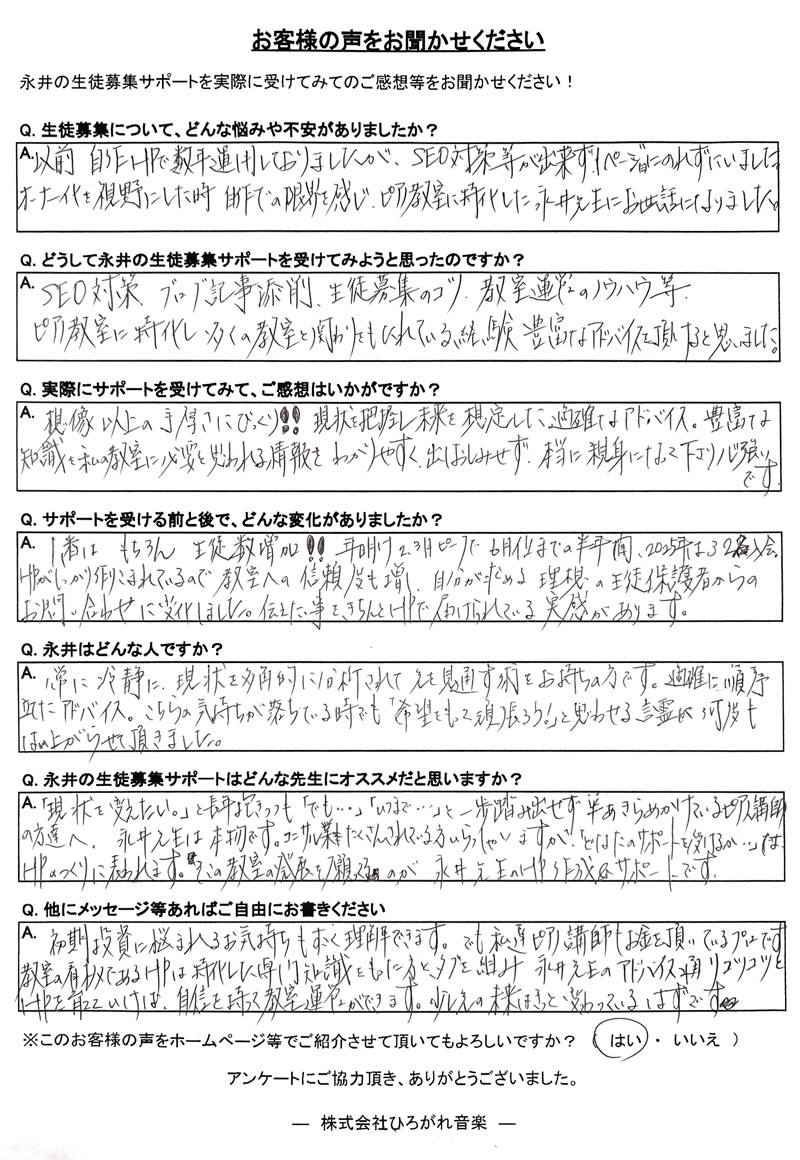 お客様の声をお聞かせください
永井の生徒募集サポートを実際に受けてみてのご感想等をお聞かせください！
Q. 生徒募集について、どんな悩みや不安がありましたか？
A. 以前 自作HPで数年運用しておりましたが、SEO対策等が出来ず1ページ目にのれずにいました。
オーナー化を視野にした時 自作での限界を感じ、ピアノ教室に特化した永井先生にお世話になりました。
Q. どうして永井の生徒募集サポートを受けてみようと思ったのですか？
A. SEO対策 ブログ記事添削、生徒募集のコツ、教室運営のノウハウ等、
ピアノ教室に特化し 多くの教室と関わりをもたれている経験 豊富なアドバイスを頂けると思いました。
Q. 実際にサポートを受けてみて、ご感想はいかがですか？
A. 想像以上の手厚さにびっくり!! 現状を把握し未来を想定した適確なアドバイス。豊富な
知識を私の教室に必要と思われる情報を わかりやすく、出しおしみせず、本当に親身になって下さり心強い
です。
Q. サポートを受ける前と後で、どんな変化がありましたか？
A. 1番は もちろん 生徒数増加!! 年明け2.3月ピークで 6月位までの半年間、2025年は32名入会。
HPがしっかり作りこまれているので 教室への信頼度も増し、自分が求める 理想の生徒保護者からの
お問い合わせに変化しました。伝えたい事をきちんとHPで届けられている実感があります。
Q. 永井はどんな人ですか？
A. 常に冷静に、現状を多角的に分析されて 先を見通す術をお持ちの方です。適確に順序
立てたアドバイス。こちらの気持ちが落ちている時でも「希望をもって頑張ろう！」と思わせる言霊に何度も
はい上がらせて頂きました。
Q. 永井の生徒募集サポートはどんな先生にオススメだと思いますか？
A. 「現状を変えたい。」と長年抱きつつも「でも…」「いつまで…」と一歩踏み出せず半あきらめかけているピアノ講師
の方達へ、永井先生は本物です。コンサル業をたくさんされている方いらっしゃいますが、「どなたのサポートを受けるか…」は、
HPのつくりに表われます。その教室の発展を願って のが 永井先生のHP作成&サポートです。
Q. 他にメッセージ等あればご自由にお書きください
A. 初期投資に悩まれるお気持ちもすごく理解できます。でも私達ピアノ講師もお金を頂いているプロです。
教室の看板であるHPは特化した専門知識をもった方とタグを組み 永井先生のアドバイス通りコツコツと
HPを育てていけば、自信を持って教室運営ができます。少し先の未来はきっと変わっているはずです
※このお客様の声をホームページ等でご紹介させて頂いてもよろしいですか？（ はい ・ いいえ ）
アンケートにご協力頂き、ありがとうございました。
― 株式会社ひろがれ音楽 ―